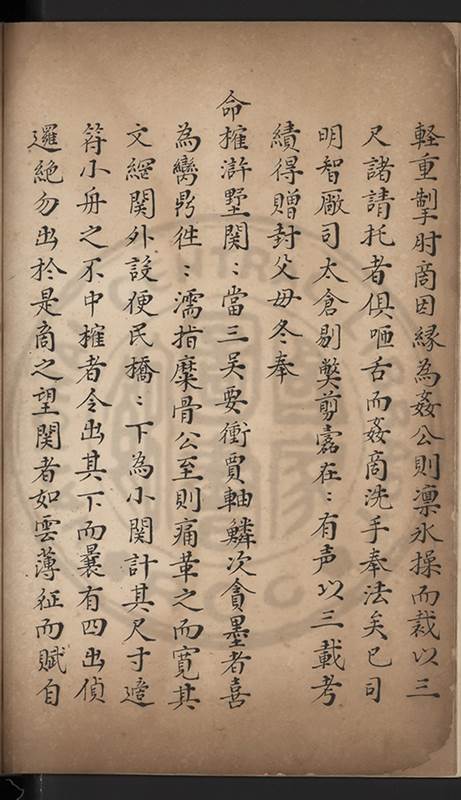 軽重掣肘商因縁為姦公則凛氷操而裁以三
尺諸請托者俱咂舌而姦商洗手奉法矣已司
明智厰司太倉剔獘剪蠧在〻有声以三載考
績得贈封父母冬奉
命搉滸墅関〻當三吴要衝賈軸鱗次貪墨者喜
為臠鼎徃〻濡指糜骨公至則痛革之而寛其
文綱関外設便民橋〻下為小関計其尺寸適
符小舟之不中搉者令出其下而曩有四出偵
邏絶勿出於是商之望関者如雲薄征而賦自